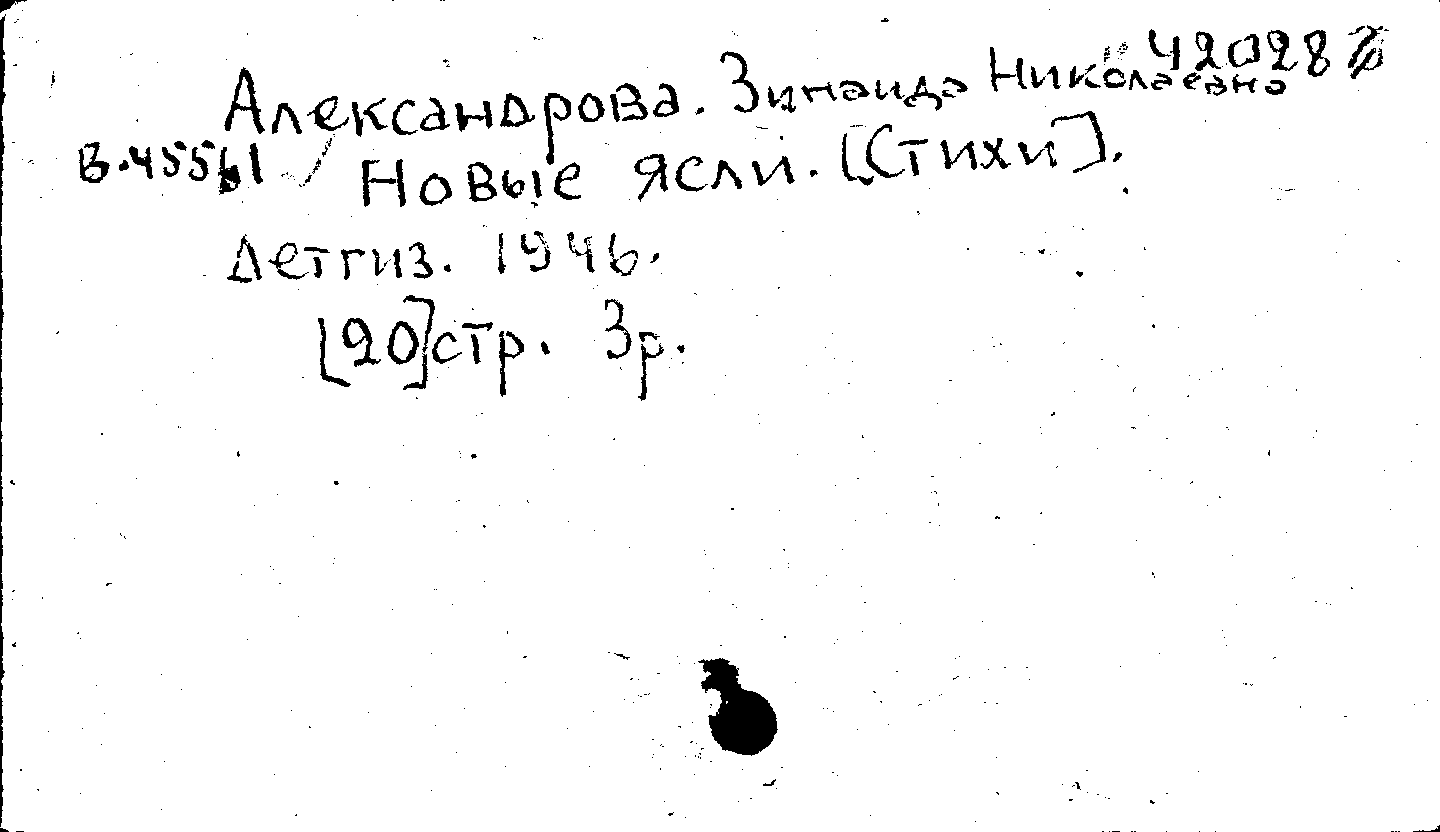 42028
Александрова. Зинаида Николаевна
В.45561
Новые ясли. [Стихи].
Детгиз. 1946.
[20]стр. 3р.